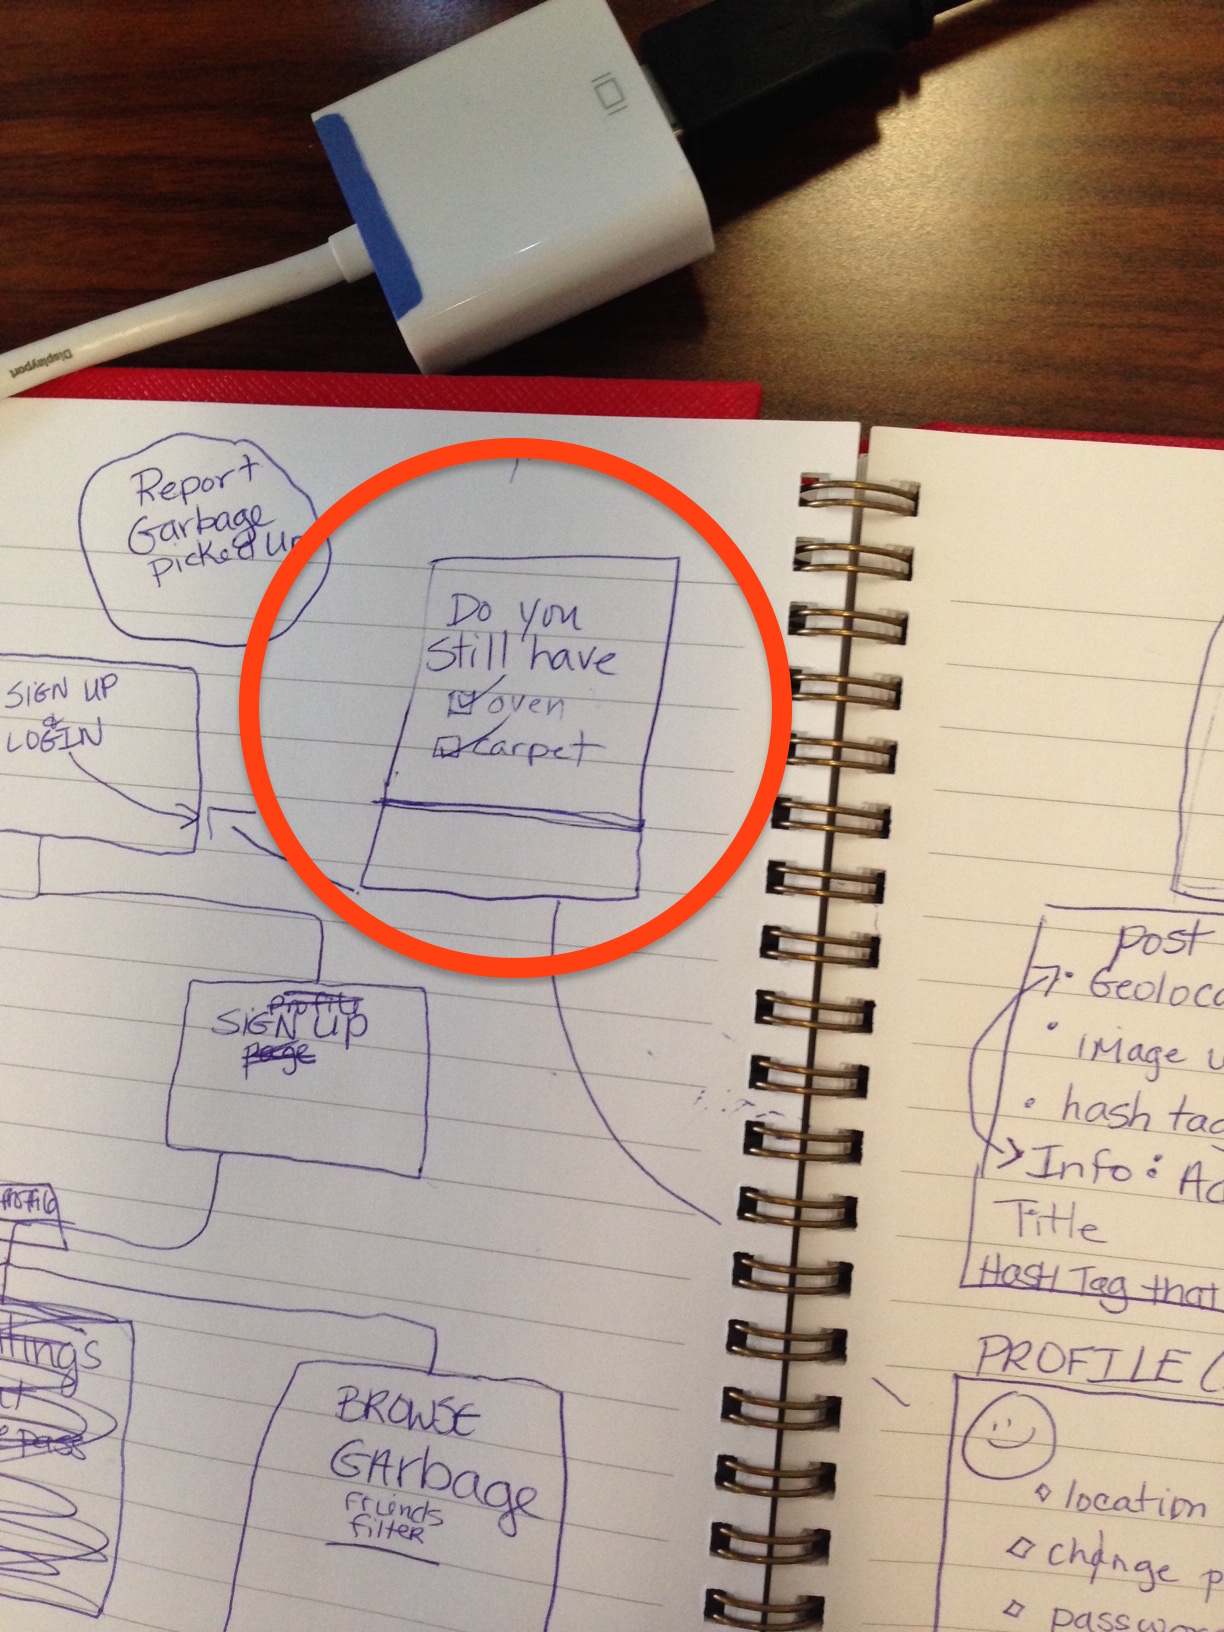 Displayport
Report
Garbage
picked Up
Do you
Still have
oven
carpet
SIGN UP
&
LOGIN
Profile
SIGN UP
page
Profile
BROWSE
GArbage
friends
filter
post
Geoloca
image u
hash tag
Info : Ac
Title
HASH Tag that
PROFILE (
location
change p
passwor